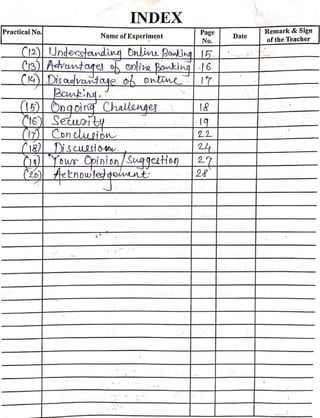 INDEX
Practical No. Name of Experiment Page No. Date Remark & Sign of the Teacher
(12) Understanding Online Banking 15
(13) Advantages of online Banking 16
(14) Disadvantage of online 17
Banking.
(15) Ongoing Challenges 18
(16) Security 19
(17) Conclusion 22
(18) Discussion 24
(19) Your Opinion/Suggestion 27
(20) Acknowledgement 28